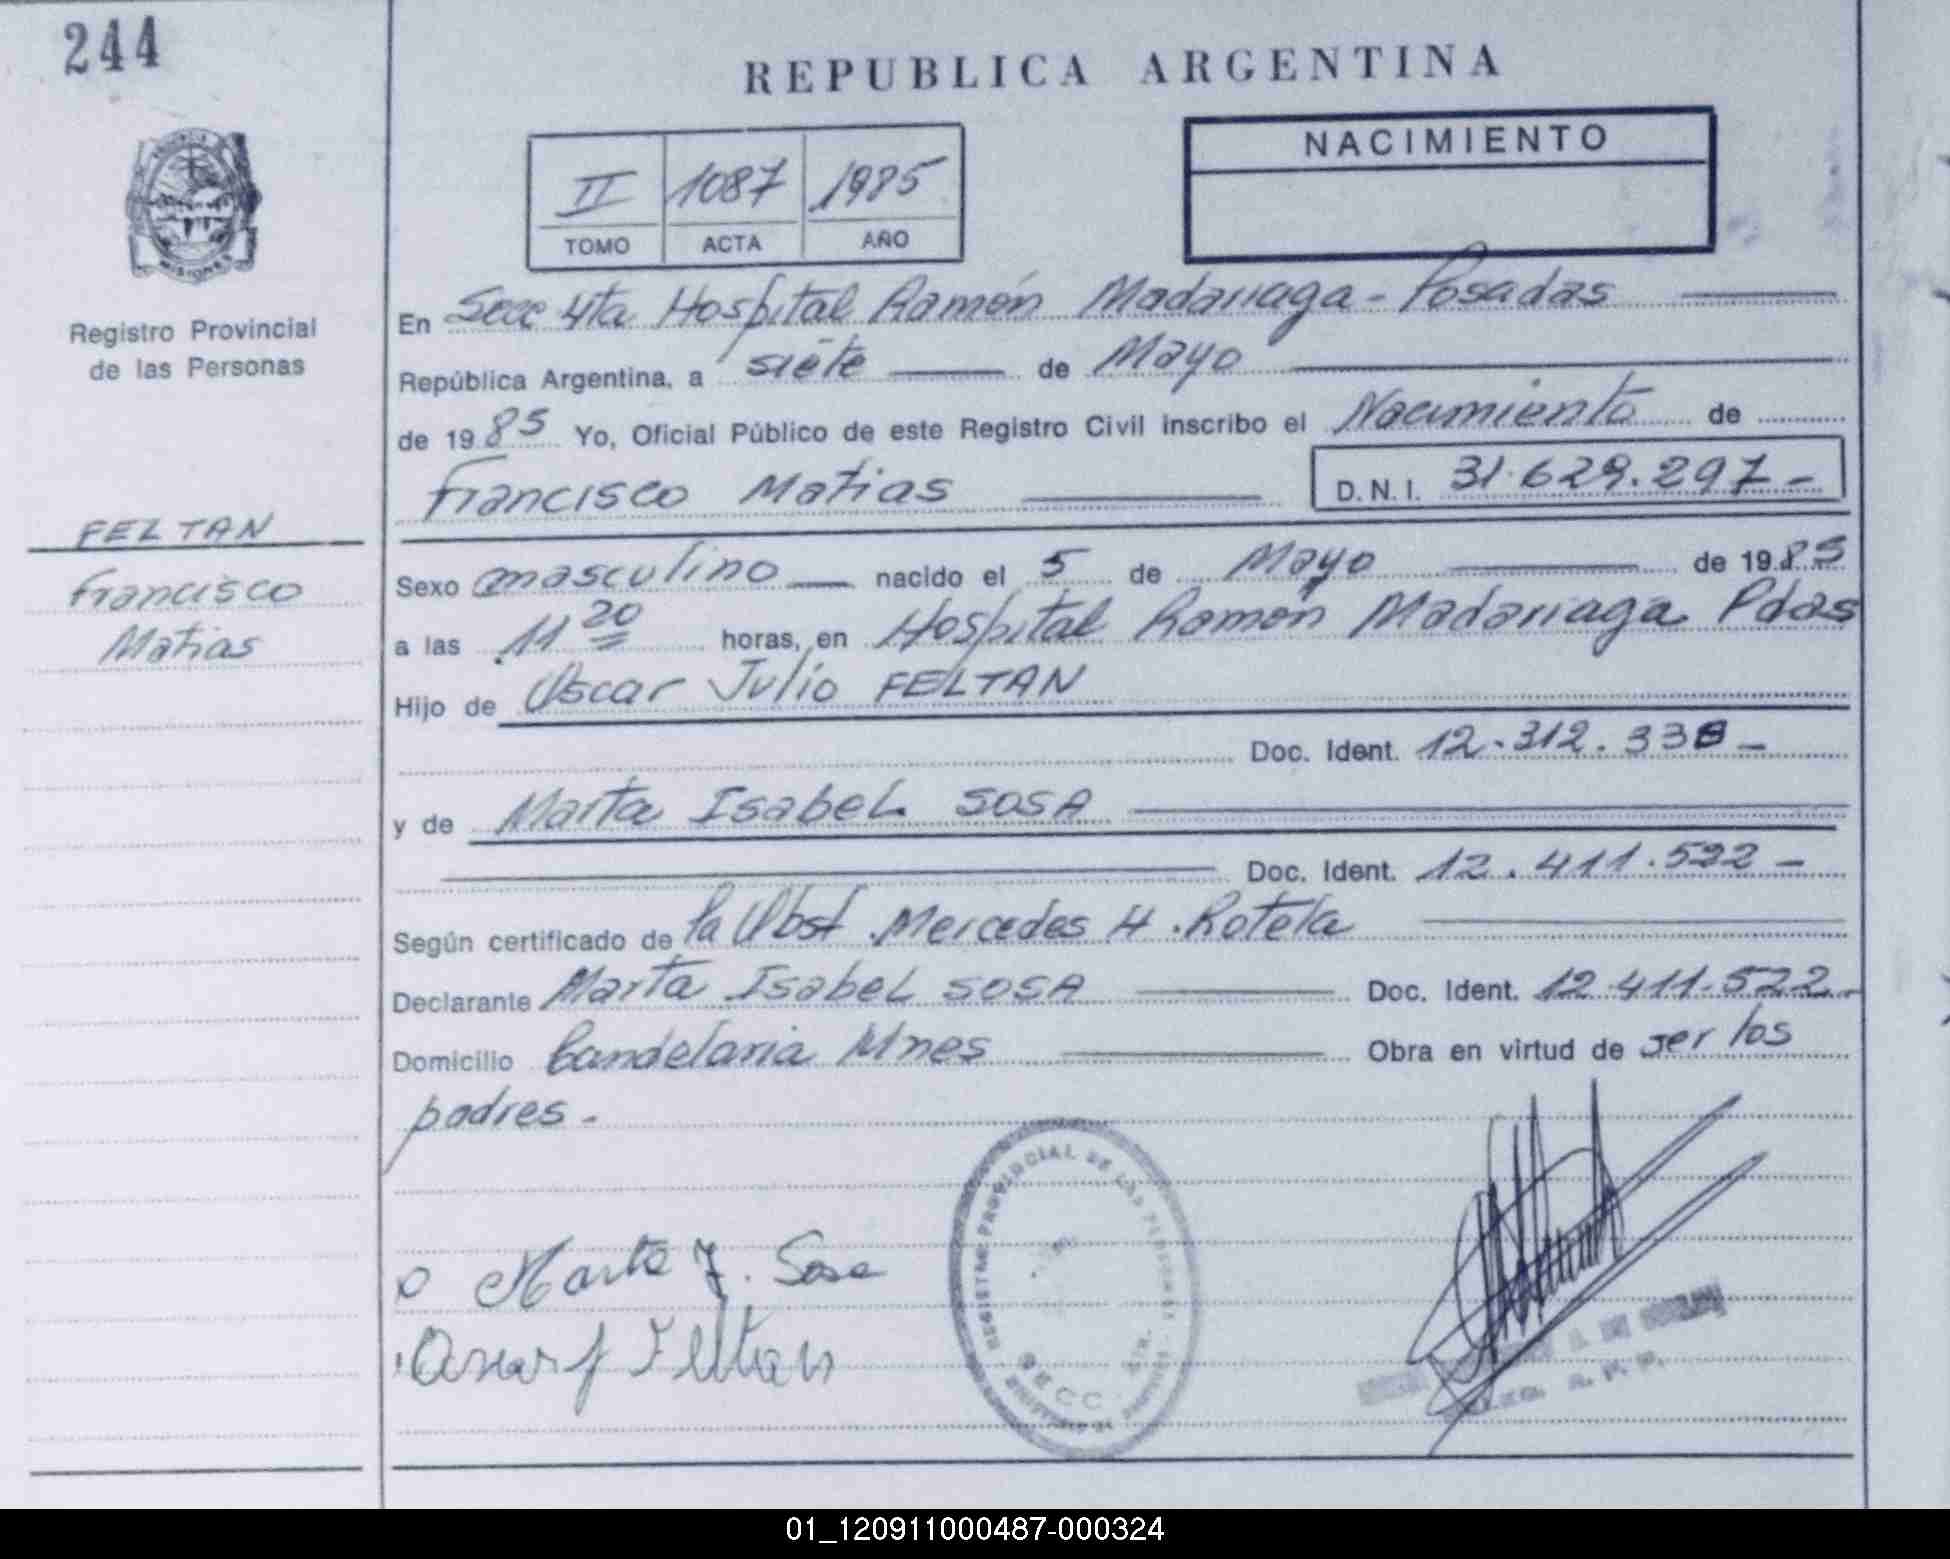 244
REPUBLICA ARGENTINA
NACIMIENTO
II 1087 1985
TOMO ACTA AÑO
MISIONES
Registro Provincial
de las Personas
En Secc 4ta Hospital Ramón Madariaga - Posadas
República Argentina, a siete de Mayo
de 1985 Yo, Oficial Público de este Registro Civil inscribo el Nacimiento de
Francisco Matias D.N.I. 31.629.297-
FELTAN
Francisco
Matias
Sexo masculino nacido el 5 de Mayo de 1985
a las 11 20 horas, en Hospital Ramón Madariaga Pdas
Hijo de Oscar Julio FELTAN
Doc. Ident. 12.312.338-
y de Marta Isabel SOSA
Doc. Ident. 12.411.522-
Según certificado de la Obst. Mercedes H. Rotela
Declarante Marta Isabel SOSA Doc. Ident. 12.411.522-
Domicilio Candelaria Mnes Obra en virtud de ser los
padres.-
Marta I. Sosa
Oscar J Feltan
REGISTRO PROVINCIAL DE LAS PERSONAS
SECC. 4TA.
01_120911000487-000324